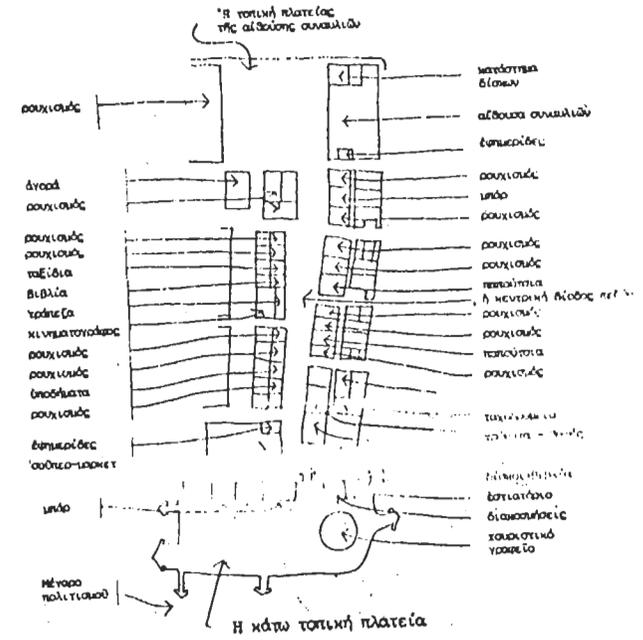 Ἡ τοπική πλατείας
τῆς αἰθούσης συναυλιῶν
ρουχισμός
ἀγορά
ρουχισμός
ρουχισμός
ρουχισμός
ταξίδια
βιβλία
τράπεζα
κινηματογράφος
ρουχισμός
ρουχισμός
ὑποδήματα
ρουχισμός
ἐφημερίδες
σούπερ-μαρκετ
μπάρ
Μέγαρο
πολιτισμοῦ
κατάστημα
δίσκων
αἴθουσα συναυλιῶν
ἐφημερίδες
ρουχισμός
μπάρ
ρουχισμός
ρουχισμός
ρουχισμός
παπούτσια
ἡ κεντρική δίοδος
ρουχισμός
ρουχισμός
παπούτσια
ρουχισμός
ταχυδρομεῖα
ἑστιατόριο
διακοσμήσεις
τουριστικό
γραφεῖο
Ἡ κάτω τοπική πλατεία